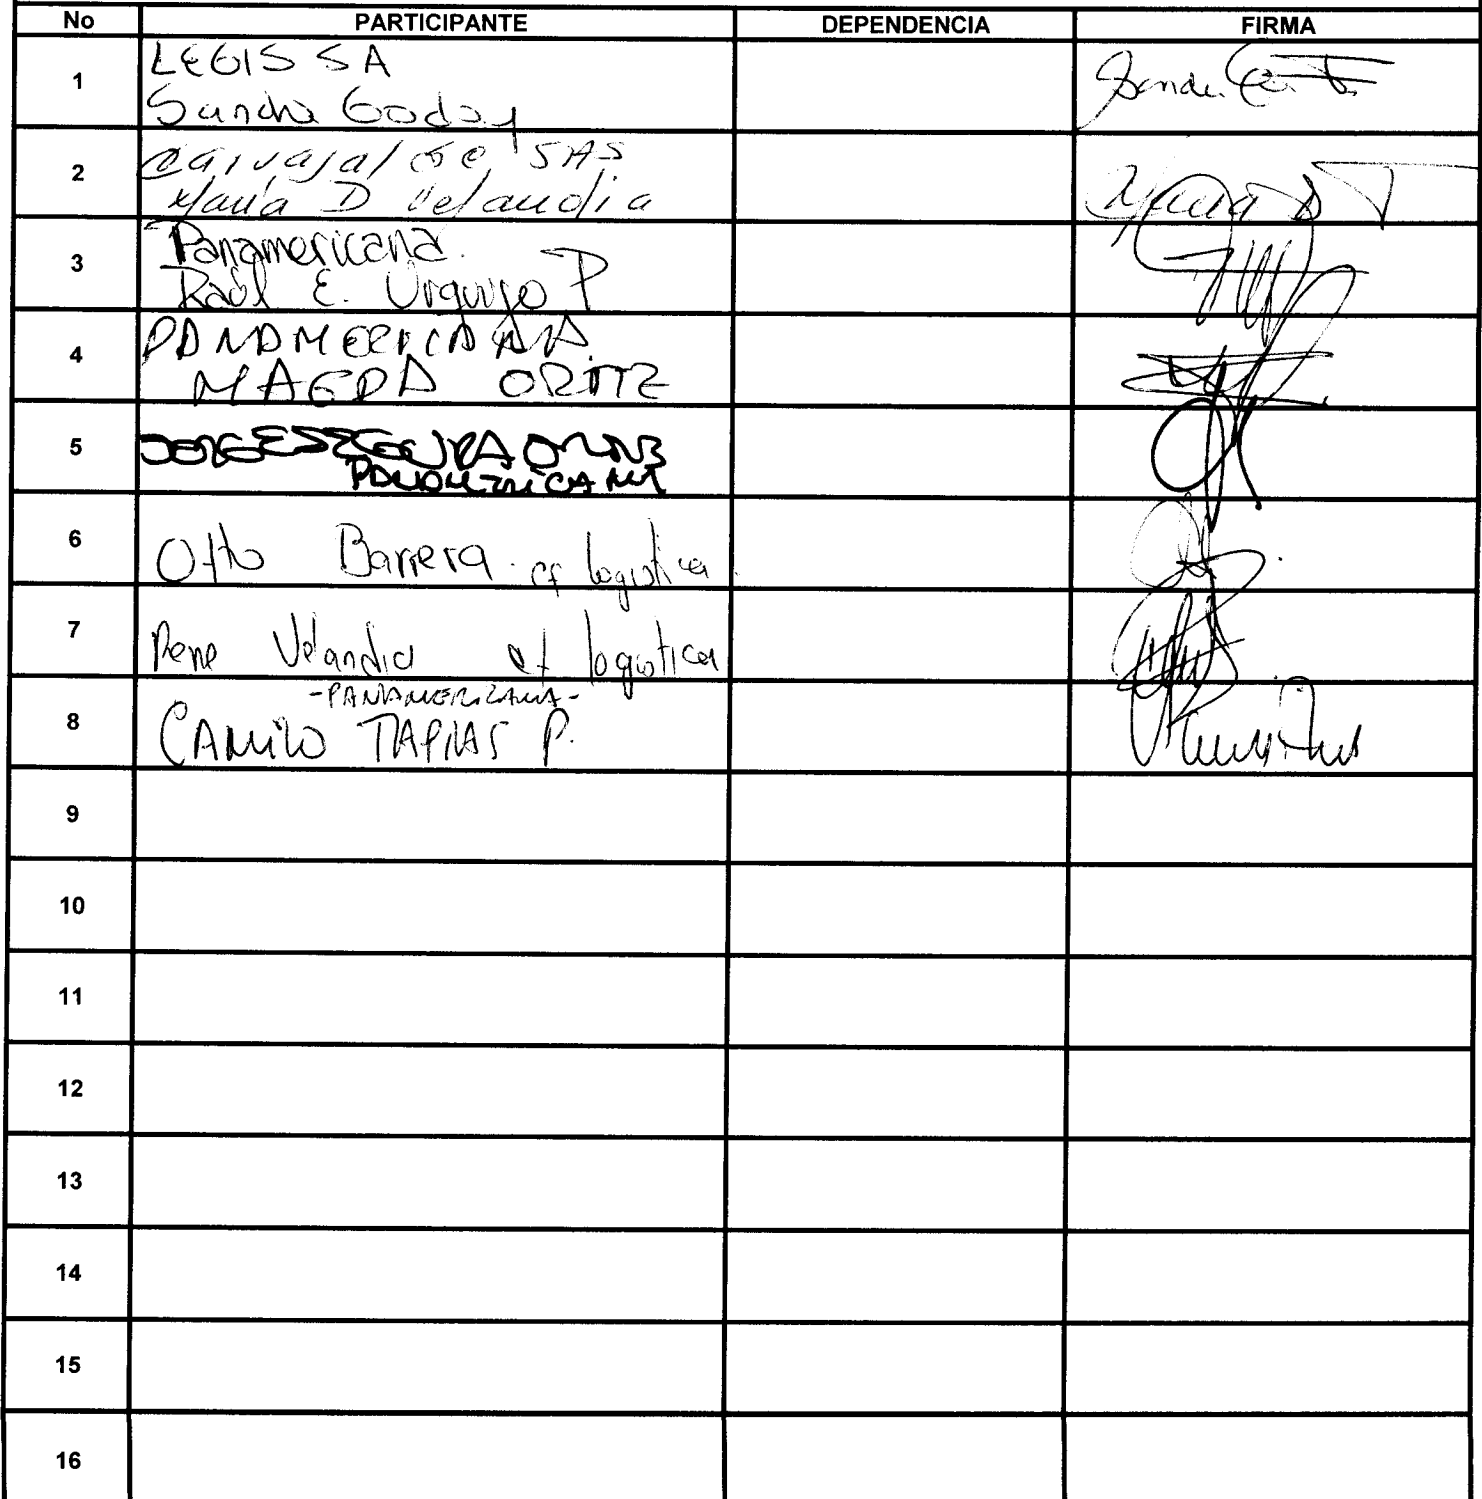 No PARTICIPANTE DEPENDENCIA FIRMA
1 LEGIS SA
Sandra Godoy
2 Carvajal SAS
Maria D Velandia
3 Panamericana.
Raúl E. Urquijo P
4 PANAMERICANA
MAGDA ORTIZ
5 JORGE SEGURA
PANAMERICANA
6 Otto Barrera cf logistica
7 Rene Velandia cf logistica
8 -PANAMERICANA-
CAMILO TAPIAS P.
9
10
11
12
13
14
15
16